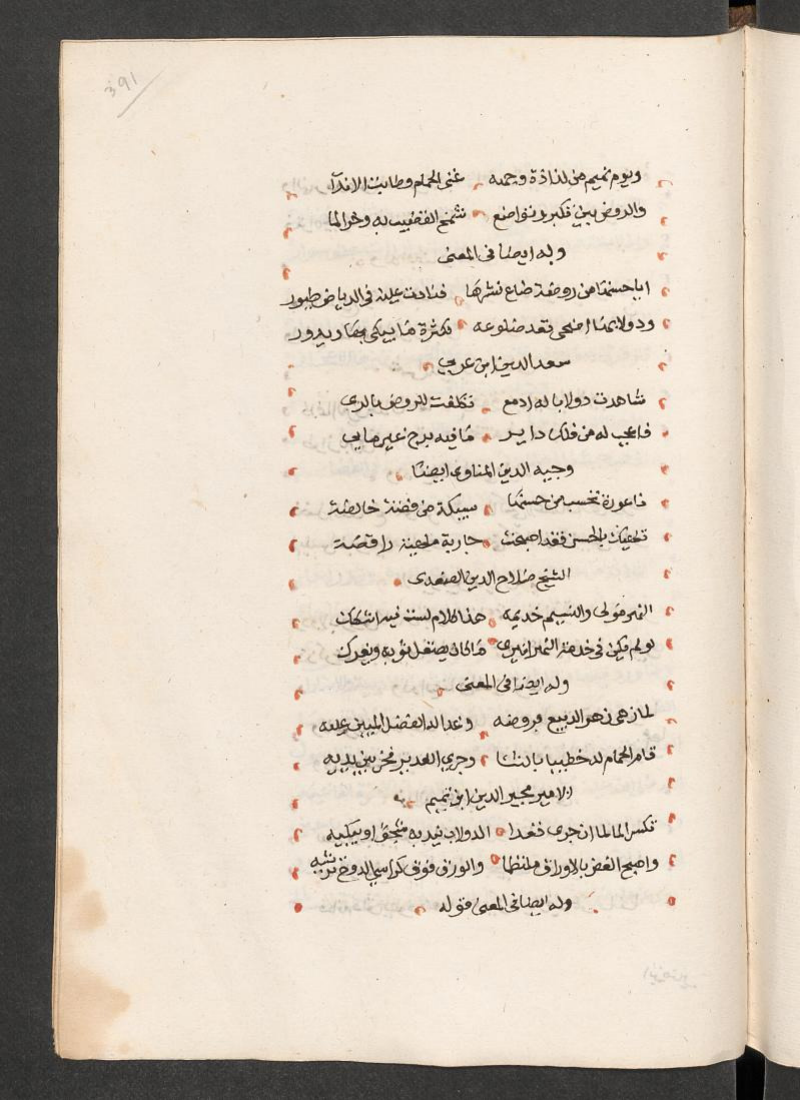 391
ويوم تميم من لذاذة وجمه غنى الحمام وطابت الاندآ
والروض بين تكبر وتواضع شمخ القضيب به وخر الما
وله ايضا في المعنى
ايا حسنها من روضة ضاع نشرها فنادت عليه في الرياض طيور
ودولابها اضحى تعد ضلوعه لكثرة ما يبكي بها ويدور
سعد الدين ابن عربي
شاهدت دولابا له ادمع تكلفت للروض بالري
فاعجب له من فلك داير ما فيه برج غير مايي
وجيه الدين المناوي ايضا
ناعورة تحسب من حسنها سبيكة من فضة خالصة
بالحسن فقد اصبحت جارية ملحينة راقصة
الشيخ صلاح الدين الصفدي
النهر مولى والنسيم خديمه هذا كلام لست فيه اشكك
لو لم يكن في خدمة النهر انبرى ما كان يصقل ثوبه ويفرك
وله ايضا في المعنى
لما زهى زهر الربيع بروضه وغدا له الفضل المبين عليه
قام الحمام له خطيبا بالثنا وجرى الغدير فخر بين يديه
الامير مجير الدين ابن تميم
تكسر الما لما ان جرى فغدا الدولاب يندبه شجوا ويبكيه
واصبح الغصن بالاوراق ملتطما والورق فوق كراسي الدوح ترثيه
وله ايضا في المعنى قوله